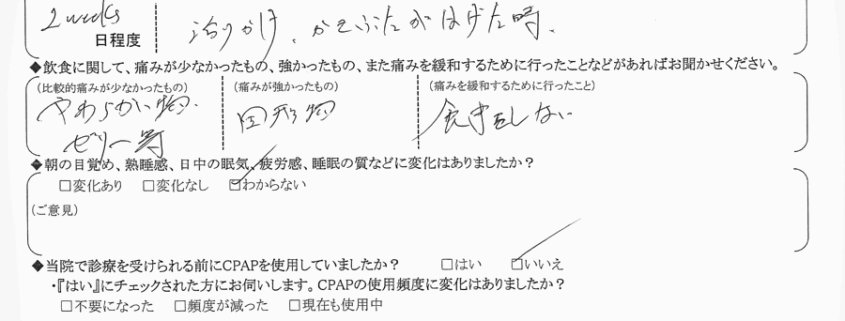 2 weeks
日程度
治りかけ、かさぶたがはげた時、
◆飲食に関して、痛みが少なかったもの、強かったもの、また痛みを緩和するために行ったことなどがあればお聞かせください。
(比較的痛みが少なかったもの)
やわらかい物、
ゼリー等
(痛みが強かったもの)
固形物
(痛みを緩和するために行ったこと)
食事をしない
◆朝の目覚め、熟睡感、日中の眠気、疲労感、睡眠の質などに変化はありましたか？
□変化あり □変化なし ☑わからない
(ご意見)
◆当院で診療を受けられる前にCPAPを使用していましたか？ □はい ☑いいえ
・『はい』にチェックされた方にお伺いします。CPAPの使用頻度に変化はありましたか？
□不要になった □頻度が減った □現在も使用中